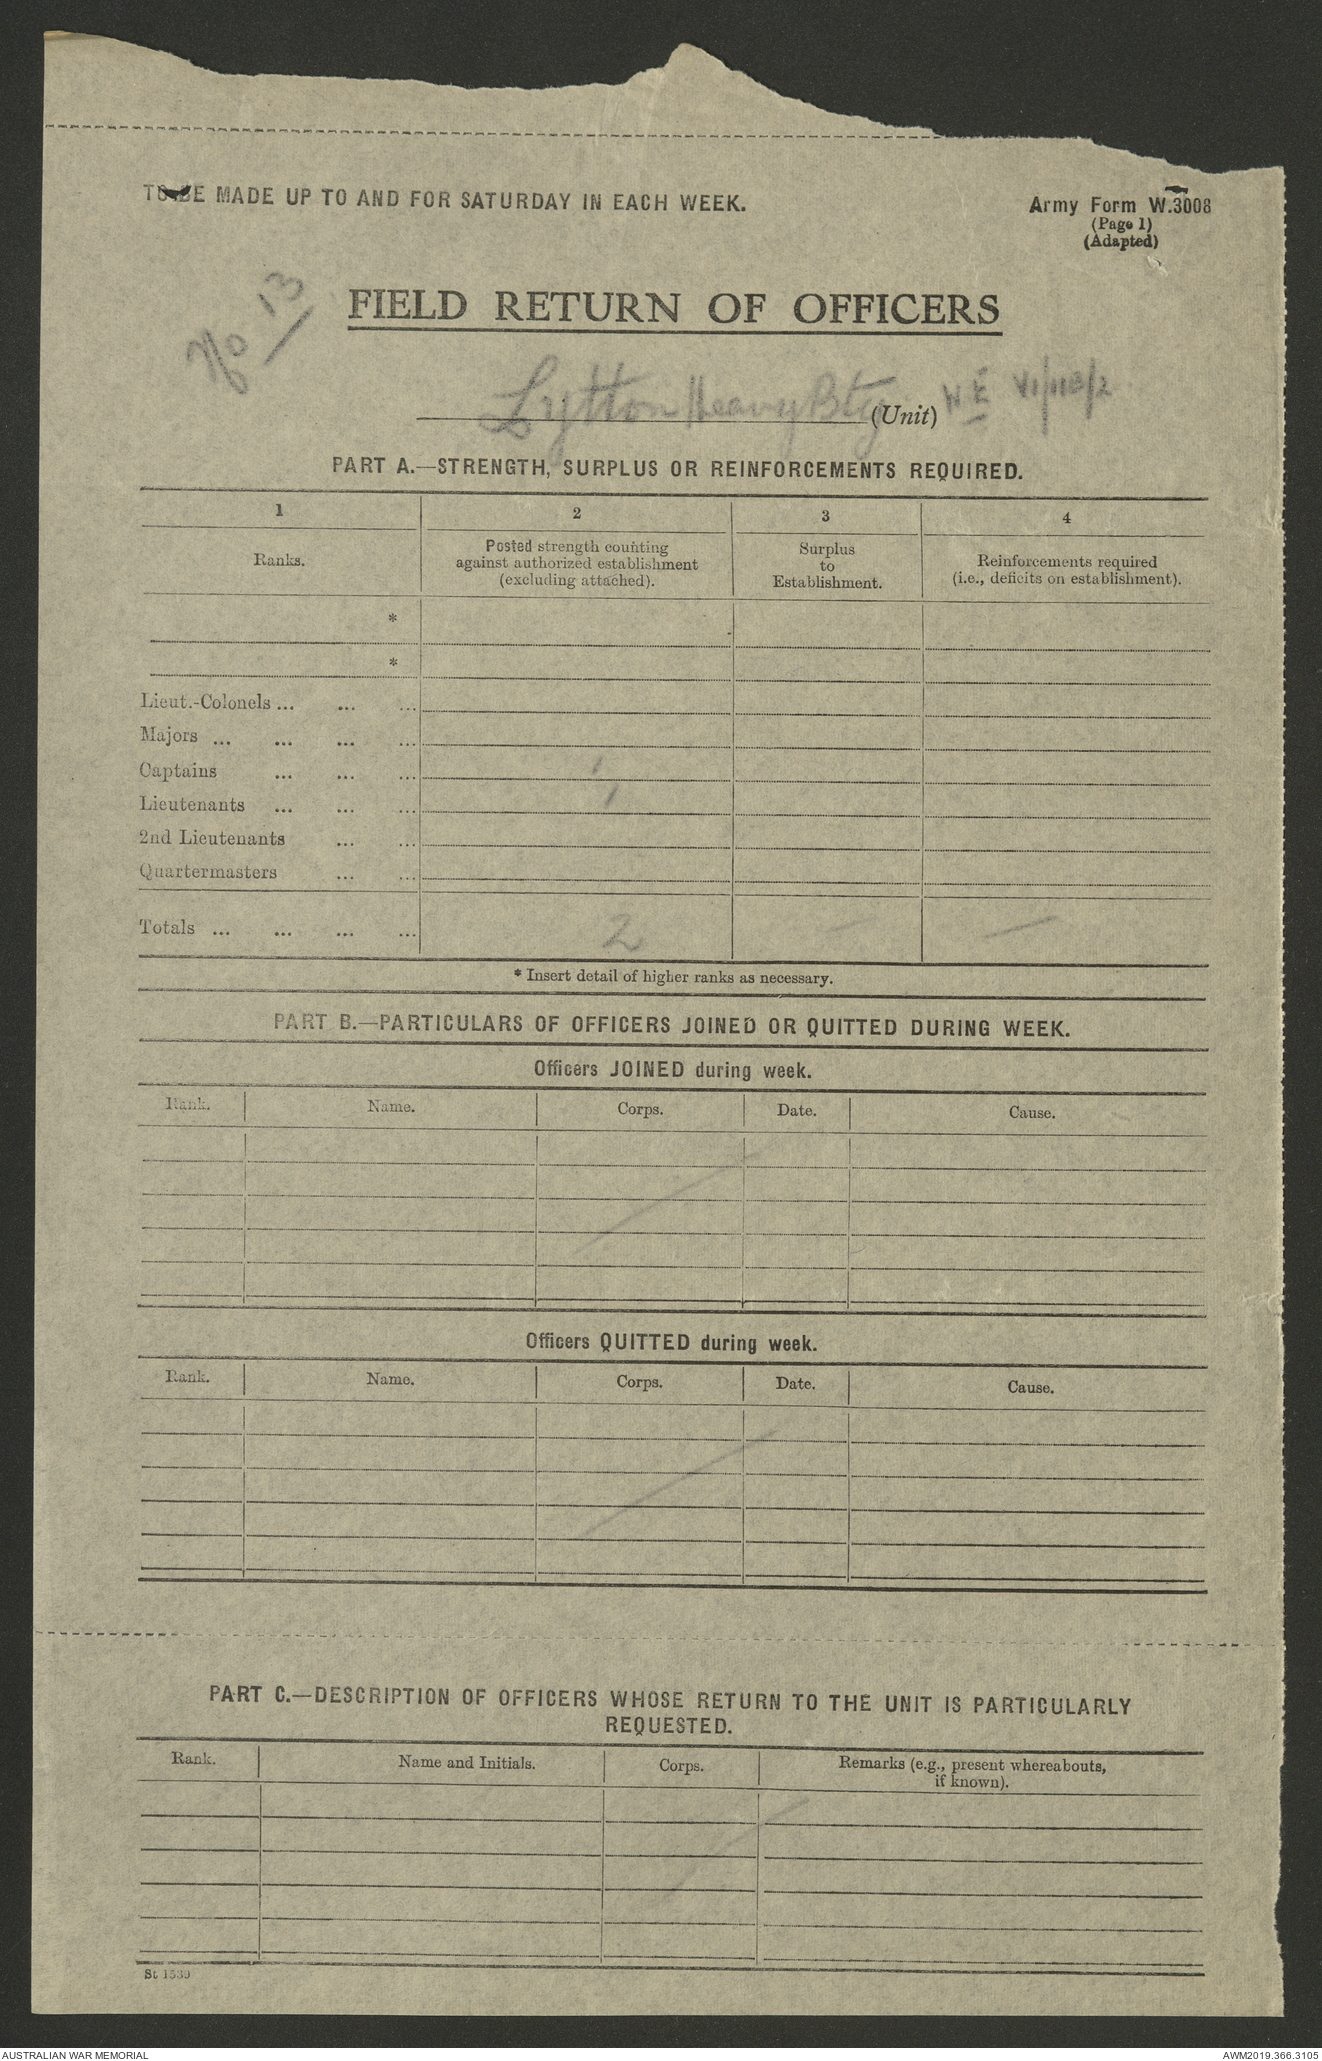 TO BE MADE UP TO AND FOR SATURDAY IN EACH WEEK.
Army Form W.3008
(Page 1)
(Adapted)
No 13
FIELD RETURN OF OFFICERS
Lytton Heavy Bty (Unit) WE VI/11B/2
PART A.—STRENGTH, SURPLUS OR REINFORCEMENTS REQUIRED.
1 2 3 4
Ranks. Posted strength counting against authorized establishment (excluding attached). Surplus to Establishment. Reinforcements required (i.e., deficits on establishment).
*
*
Lieut.-Colonels ... ... ...
Majors ... ... ... ...
Captains ... ... ... 1
Lieutenants ... ... ... 1
2nd Lieutenants ... ...
Quartermasters ... ...
Totals ... ... ... ... 2 — —
* Insert detail of higher ranks as necessary.
PART B.—PARTICULARS OF OFFICERS JOINED OR QUITTED DURING WEEK.
Officers JOINED during week.
Rank. Name. Corps. Date. Cause.
Officers QUITTED during week.
Rank. Name. Corps. Date. Cause.
PART C.—DESCRIPTION OF OFFICERS WHOSE RETURN TO THE UNIT IS PARTICULARLY
REQUESTED.
Rank. Name and Initials. Corps. Remarks (e.g., present whereabouts, if known).
St 1539
AUSTRALIAN WAR MEMORIAL AWM2019.366.3105